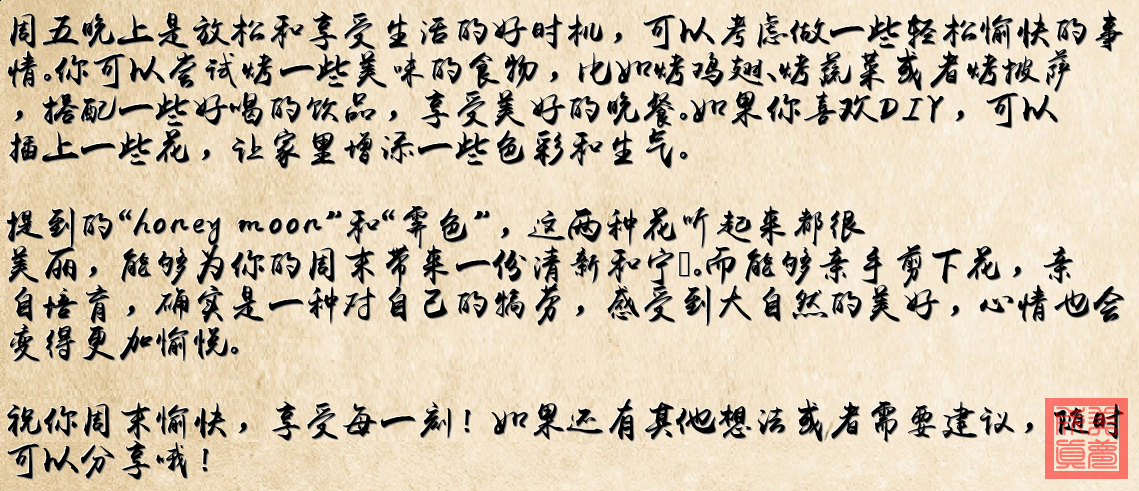 周五晚上是放松和享受生活的好时机，可以考虑做一些轻松愉快的事
情。你可以尝试烤一些美味的食物，比如烤鸡翅、烤蔬菜或者烤披萨
，搭配一些好喝的饮品，享受美好的晚餐。如果你喜欢DIY，可以
插上一些花，让家里增添一些色彩和生气。
提到的“honey moon”和“霁色”，这两种花听起来都很
美丽，能够为你的周末带来一份清新和宁□。而能够亲手剪下花，亲
自培育，确实是一种对自己的犒劳，感受到大自然的美好，心情也会
变得更加愉悦。
祝你周末愉快，享受每一刻！如果还有其他想法或者需要建议，随时
可以分享哦！